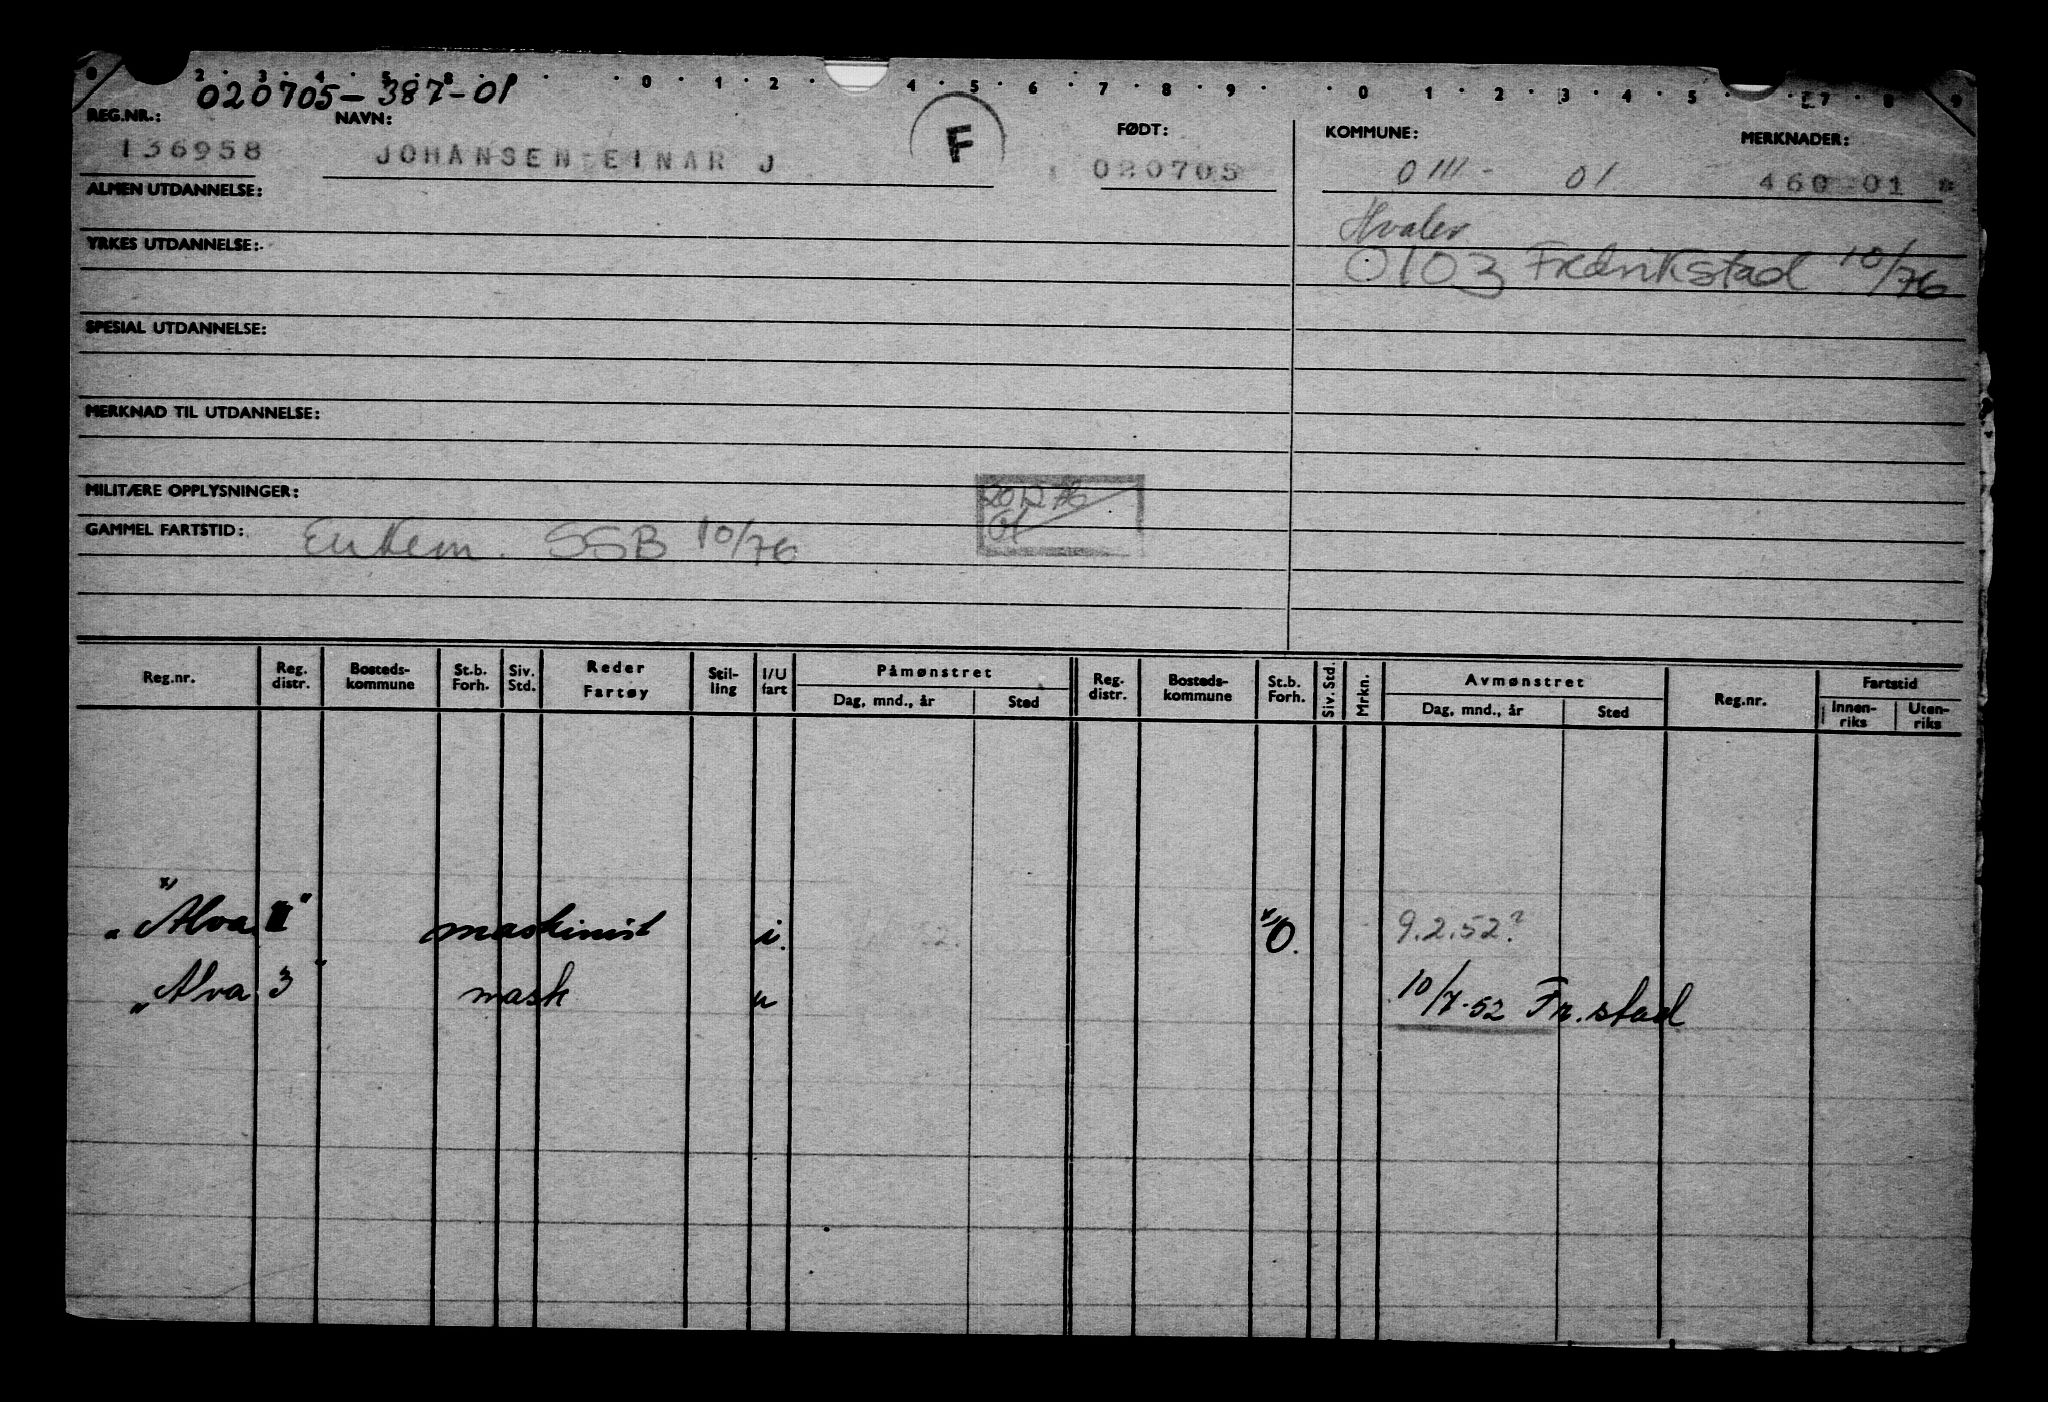 020705-387-01
REG.NR.: NAVN: F FØDT: KOMMUNE: MERKNADER:
136958 JOHANSEN EINAR J 020705 0111- 01 460 01 *
ALMEN UTDANNELSE:
Hvaler
YRKES UTDANNELSE:
0103 Fredrikstad 10/76
SPESIAL UTDANNELSE:
MERKNAD TIL UTDANNELSE:
MILITÆRE OPPLYSNINGER:
GAMMEL FARTSTID: Enkem. SSB 10/76
Reg.nr. Reg. distr. Bosteds-kommune St.b. Forh. Siv. Std. Reder Fartøy Stil-ling I/U fart Påmønstret Dag, mnd., år Sted Reg. distr. Bosteds-kommune St.b. Forh. Siv. Std. Mrkn. Avmønstret Dag, mnd., år Sted Reg.nr. Fartstid Innen-riks Uten-riks
"Alva II" maskinist i. O. 9.2.52?
"Alva 3" mask u 10/7-52 Fr.stad